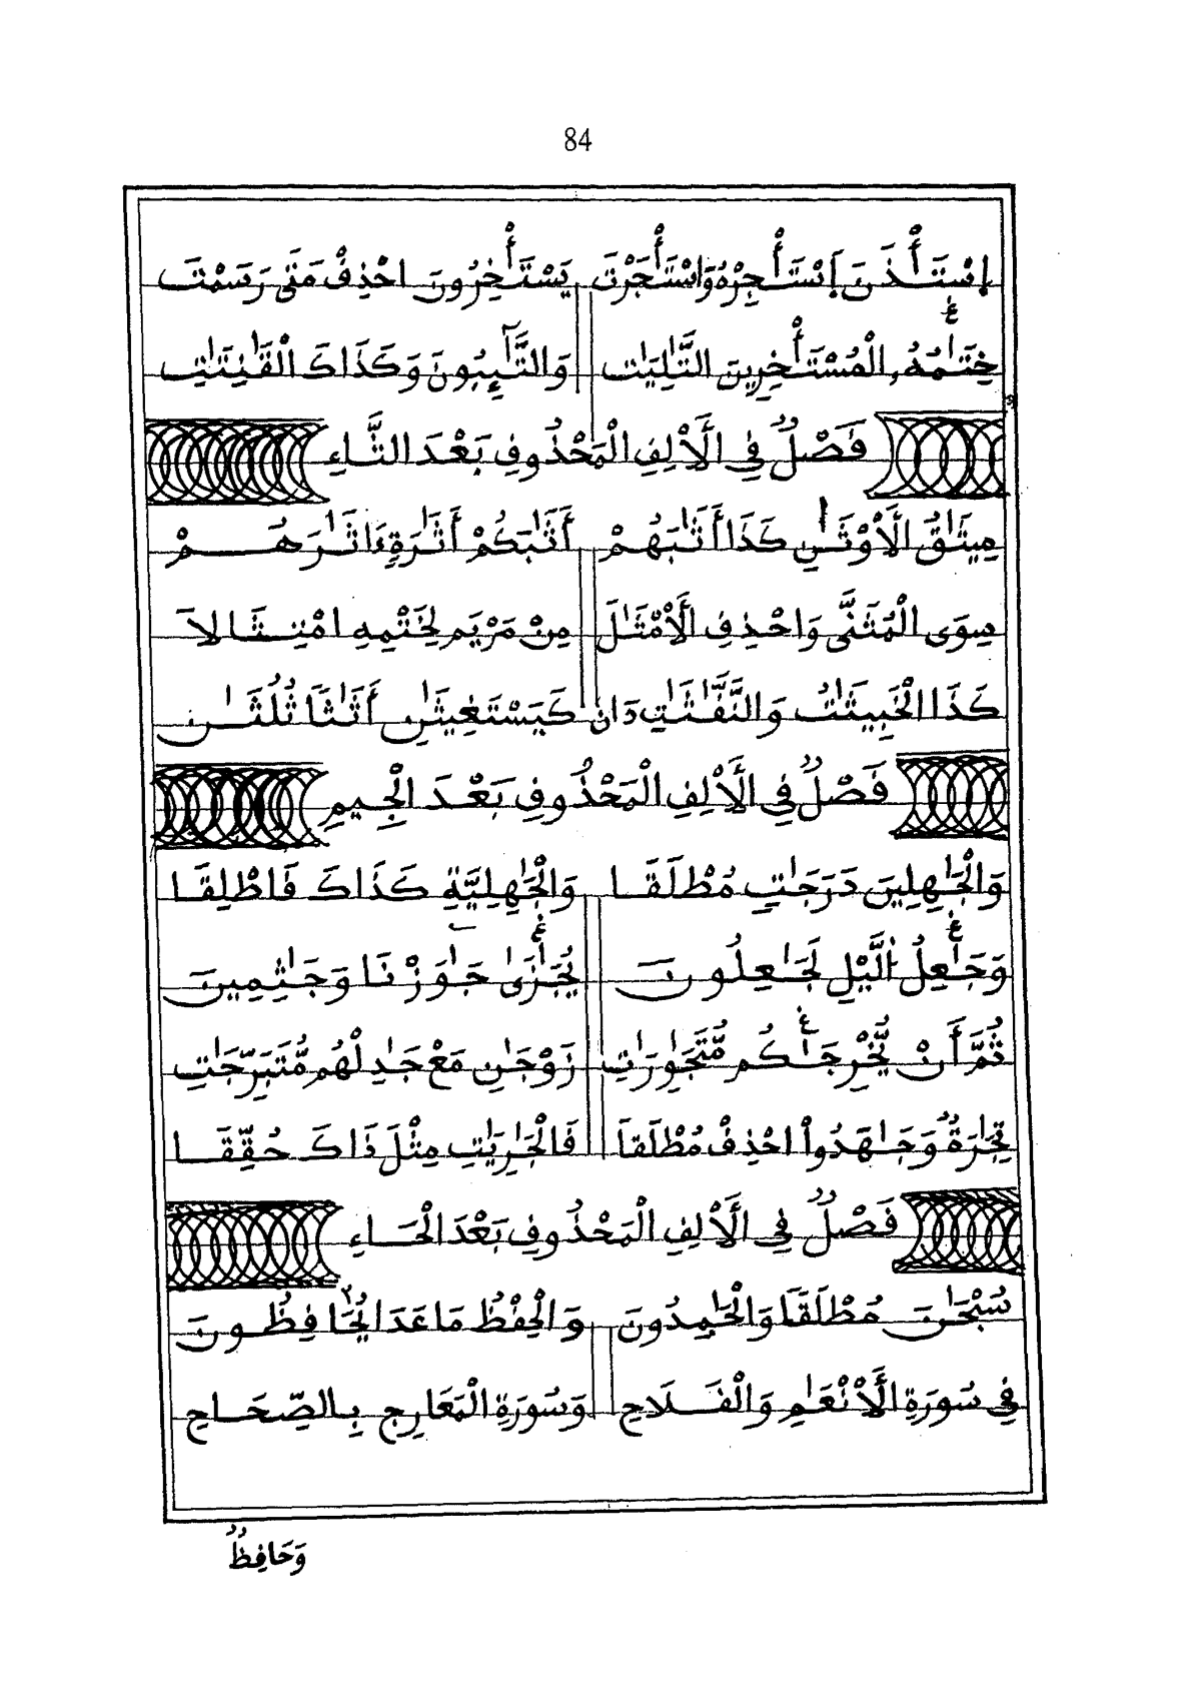 84
اِسْتَـٔذَنَ اِسْتَـٔجِرْهُ وَاسْتَـٔجَرْتَ يَسْتَـٔخِرُونَ احْذِفْ مَتَى رَسَمْتَ
خِتَٰمُهُ, الْمُسْتَـٔخِرِينَ التَّٰلِيَٰت وَالتَّٰٓئِبُونَ وَكَذَاكَ الْقَٰنِتَٰتِ
فَصْلٌ فِي الَالِفِ الْمَحْذُوفِ بَعْدَ الثَّاءِ
مِيثَٰقُ الَاوْثَٰنِ كَذَا أَثَٰبَهُمْ أَثَٰبَكُمْ أَثَٰرَةٍ ءَاثَٰرَهُمْ
سِوَى الْمُثَنَّى وَاحْذِفِ الَامْثَٰلَ مِنْ مَرْيَم لِخَتْمِهِ امْتِثَالَا
كَذَا الْخَبِيثَٰتُ وَالنَّفَّٰثَٰتِ دَانْ كَيَسْتَغِيثَٰنِ أَثَٰثًا ثُلُثَٰن
فَصْلٌ فِي الَالِفِ الْمَحْذُوفِ بَعْدَ الْجِيمِ
وَالْجَٰهِلِينَ دَرَجَٰتٍ مُطْلَقَا وَالْجَٰهِلِيَّةِ كَذَاكَ فَاطْلِقَا
وَجَٰعِلُ الَّيْلِ لَجَٰعِلُونَ يُجَٰزَىٰ جَٰوَزْنَا وَجَٰثِمِينَ
ثُمَّ أَنْ يُّخْرِجَٰكُم مُّتَجَٰوِرَٰتٍ زَوْجَٰنِ مَعْ جَٰدِلْهُم مُّتَبَرِّجَٰتِ
تِجَٰرَةٌ وَجَٰهَدُواْ احْذِفْ مُطْلَقاَ فَالْجَٰرِيَٰتِ مِثْلَ ذَاكَ حُقِّقَا
فَصْلٌ فِي الَالِفِ الْمَحْذُوفِ بَعْدَ الْحَاءِ
سُبْحَٰنَ مُطْلَقَا وَالْحَٰمِدُونَ وَالْحِفْظُ مَا عَدَا يُحَافِظُونَ
فِي سُورَةِ الَانْعَٰمِ وَالْفَلَاحِ وَسُورَةِ الْمَعَارِجِ بِالصِّحَاحِ
وَحَافِظٌ